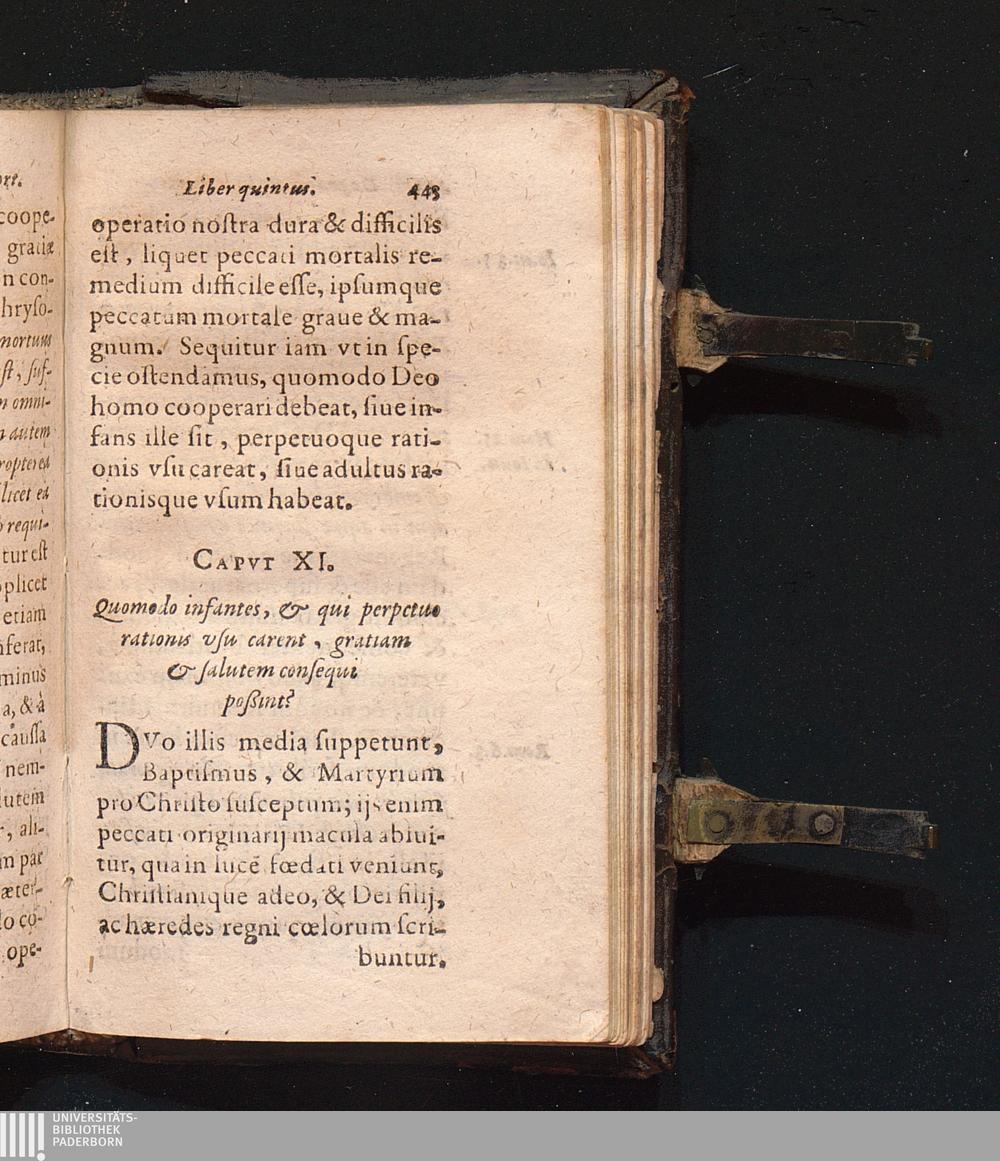 ort.
coope-
gratiæ
n con-
hryſo-
mortuus
ſt, ſuf-
n omni-
n autem
roptereà
licet ea
o requi-
tur eſt
plicet
etiam
nferat,
minus
a, & à
cauſſa
nem-
lutem
r, ali-
m par
æter-
lo co-
ope-
Liber quintus. 443
operatio noſtra dura & difficilis
eſt, liquet peccati mortalis re-
medium difficile eſſe, ipſumque
peccatum mortale graue & ma-
gnum. Sequitur iam vt in ſpe-
cie oſtendamus, quomodo Deo
homo cooperari debeat, ſiue in-
fans ille ſit, perpetuoque rati-
onis vſu careat, ſiue adultus ra-
tionisque vſum habeat.
CAPVT XI.
Quomodo infantes, & qui perpetuo
rationis vſu carent, gratiam
& ſalutem conſequi
poßint?
DVo illis media ſuppetunt,
Baptiſmus, & Martyrium
pro Chriſto ſuſceptum; ijs enim
peccati originarij macula ablui-
tur, qua in lucē fœdati veniunt,
Chriſtianique adeo, & Dei filij,
ac hæredes regni cœlorum ſcri-
buntur.
UNIVERSITÄTS-
BIBLIOTHEK
PADERBORN